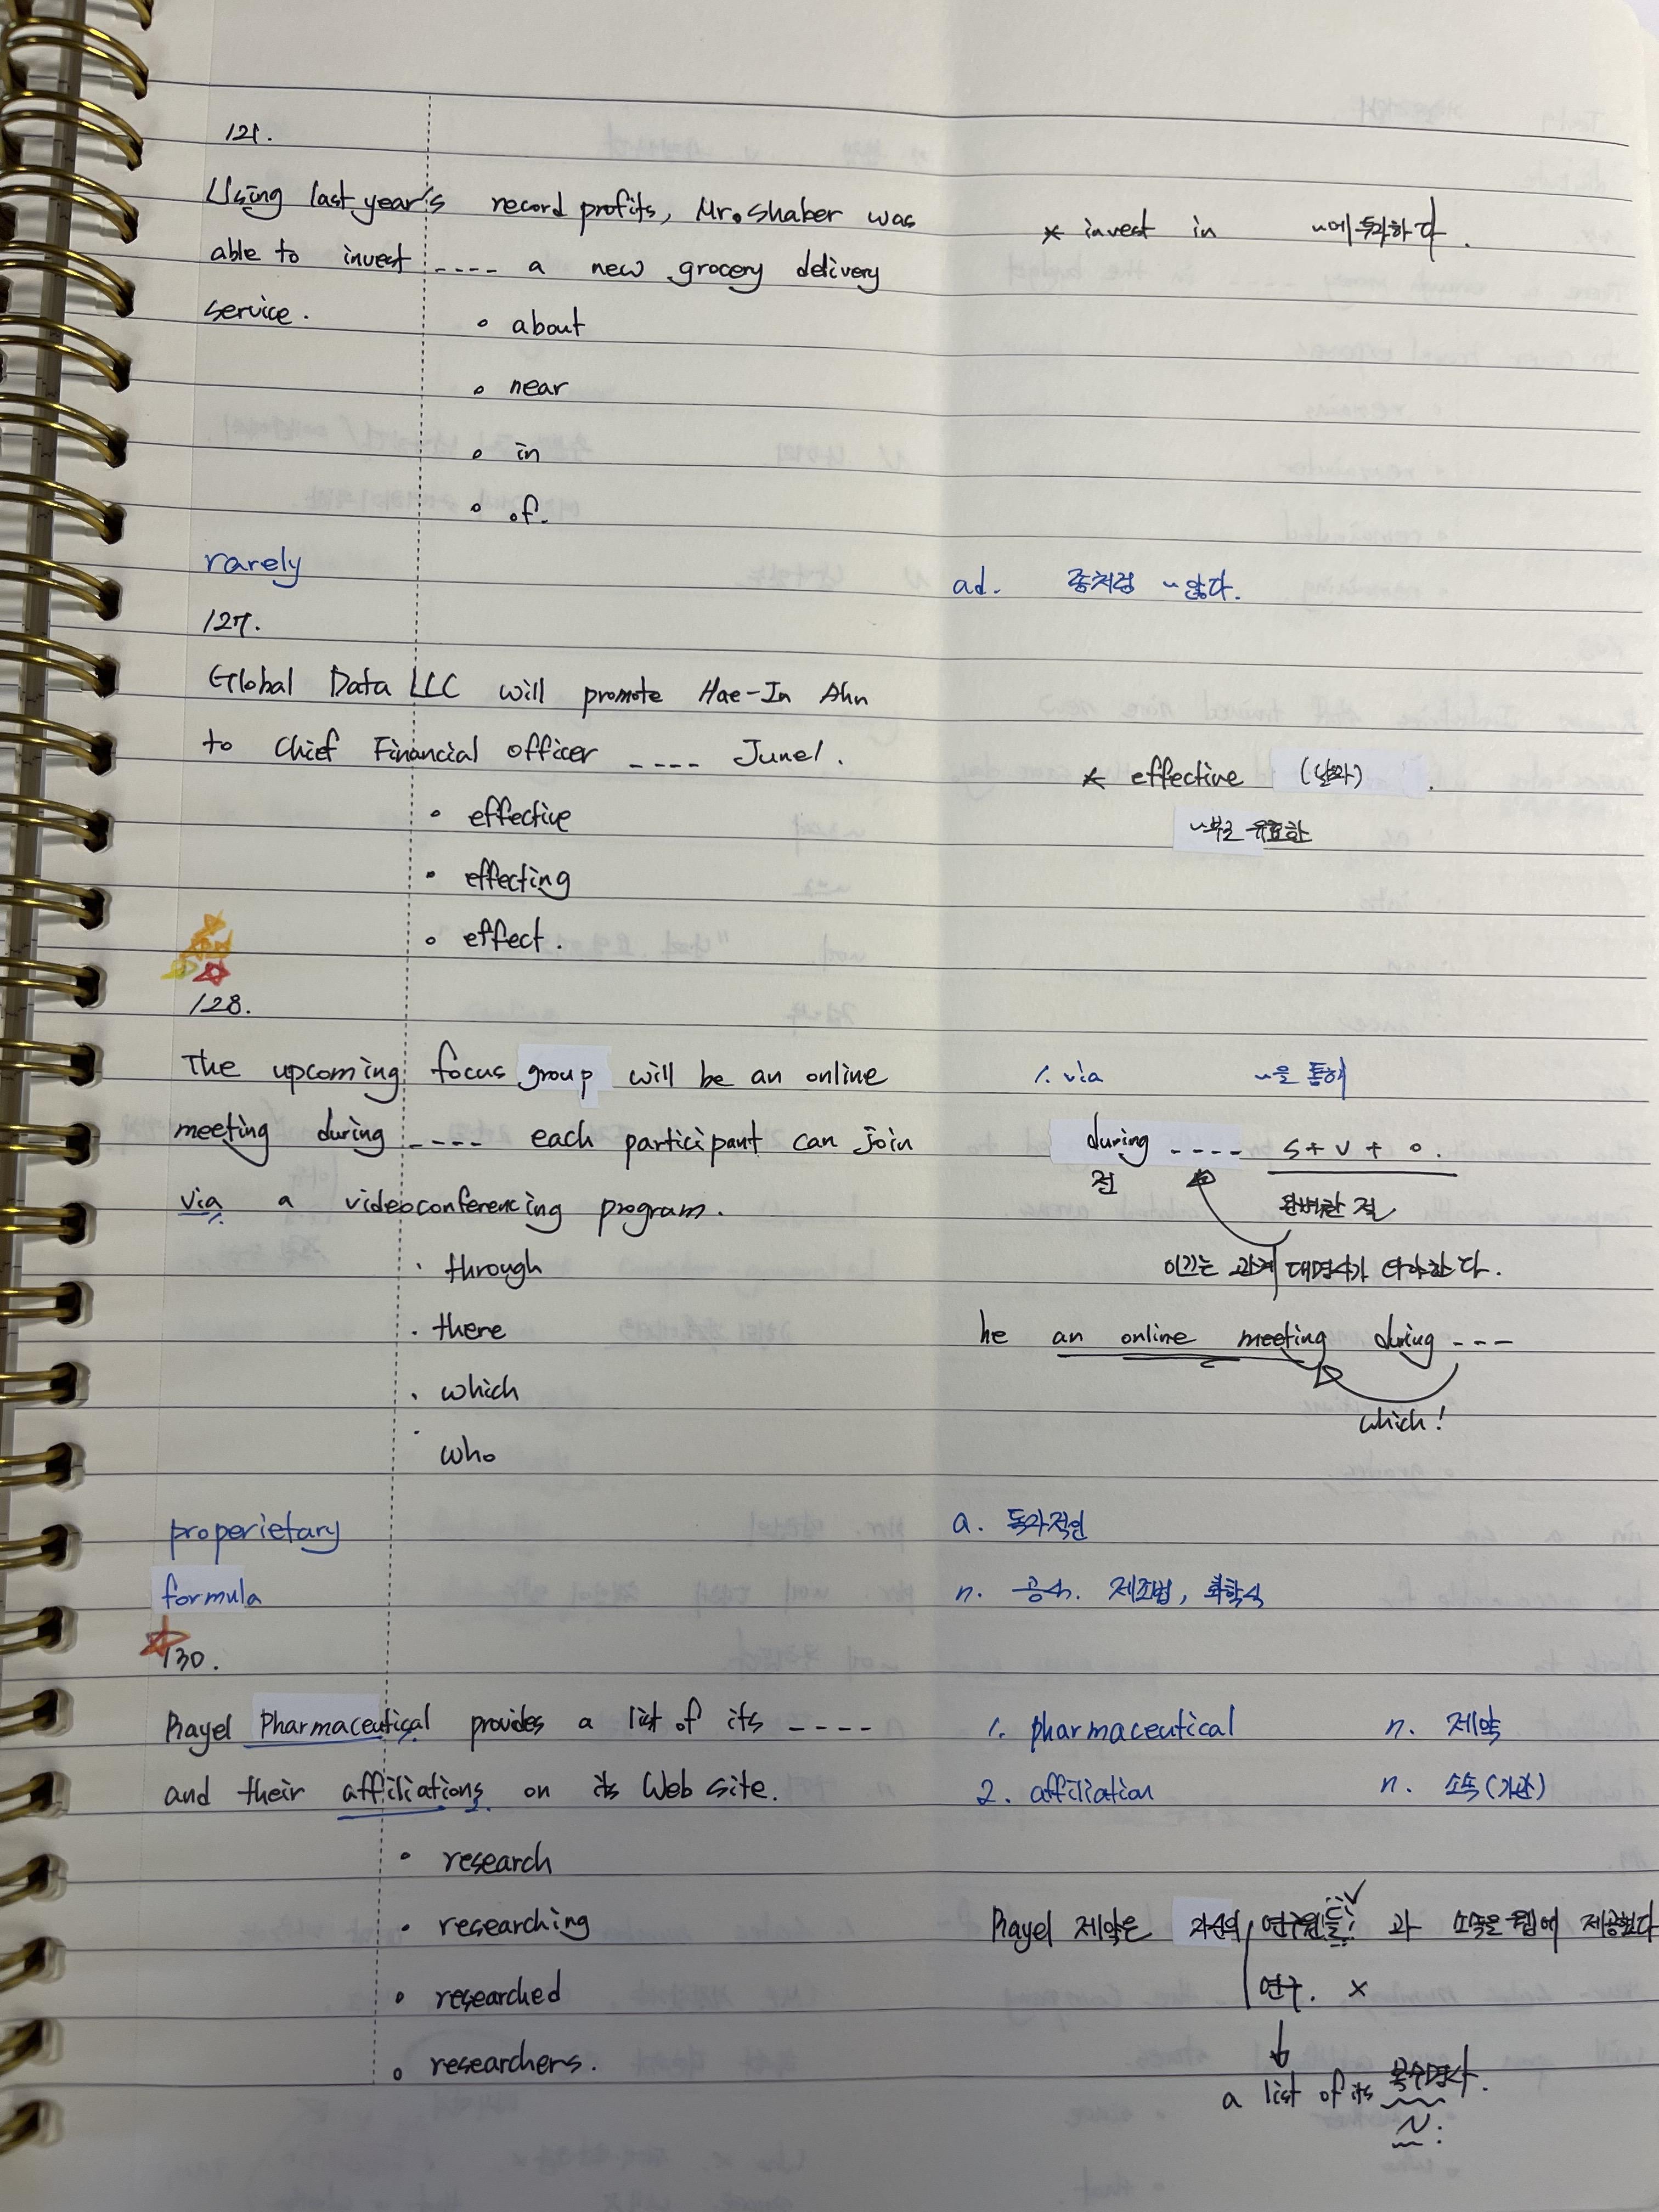 121.
Using last year's record profits, Mr. Shaber was
* invest in ~에 투자하다.
able to invest ---- a new grocery delivery
service.
• about
• near
• in
• of.
rarely ad. 좀처럼 ~않다.
127.
Global Data LLC will promote Hae-In Ahn
to Chief Financial Officer ---- June1.
* effective (날짜).
~부로 유효한
• effective
• effecting
• effect.
128.
The upcoming focus group will be an online
1. via ~을 통해
meeting during ---- each participant can join
during ---- S + V + O.
전 완벽한 절
via a videoconferencing program.
1.
이끄는 관계 대명사가 와야한다.
• through
• there
• which
• who
be an online meeting during ---
which!
properietary a. 독자적인
formula n. 공식. 제조법, 화학식
130.
Rayel Pharmaceutical provides a list of its ----
1.
1. pharmaceutical n. 제약
and their affiliations on its Web site.
2.
2. affiliation n. 소속(기관)
• research
• researching
• researched
• researchers.
Rayel 제약은 자신의 연구원들! 과 소속은 웹에 제공한다
연구. X
a list of its 복수명사.
N: